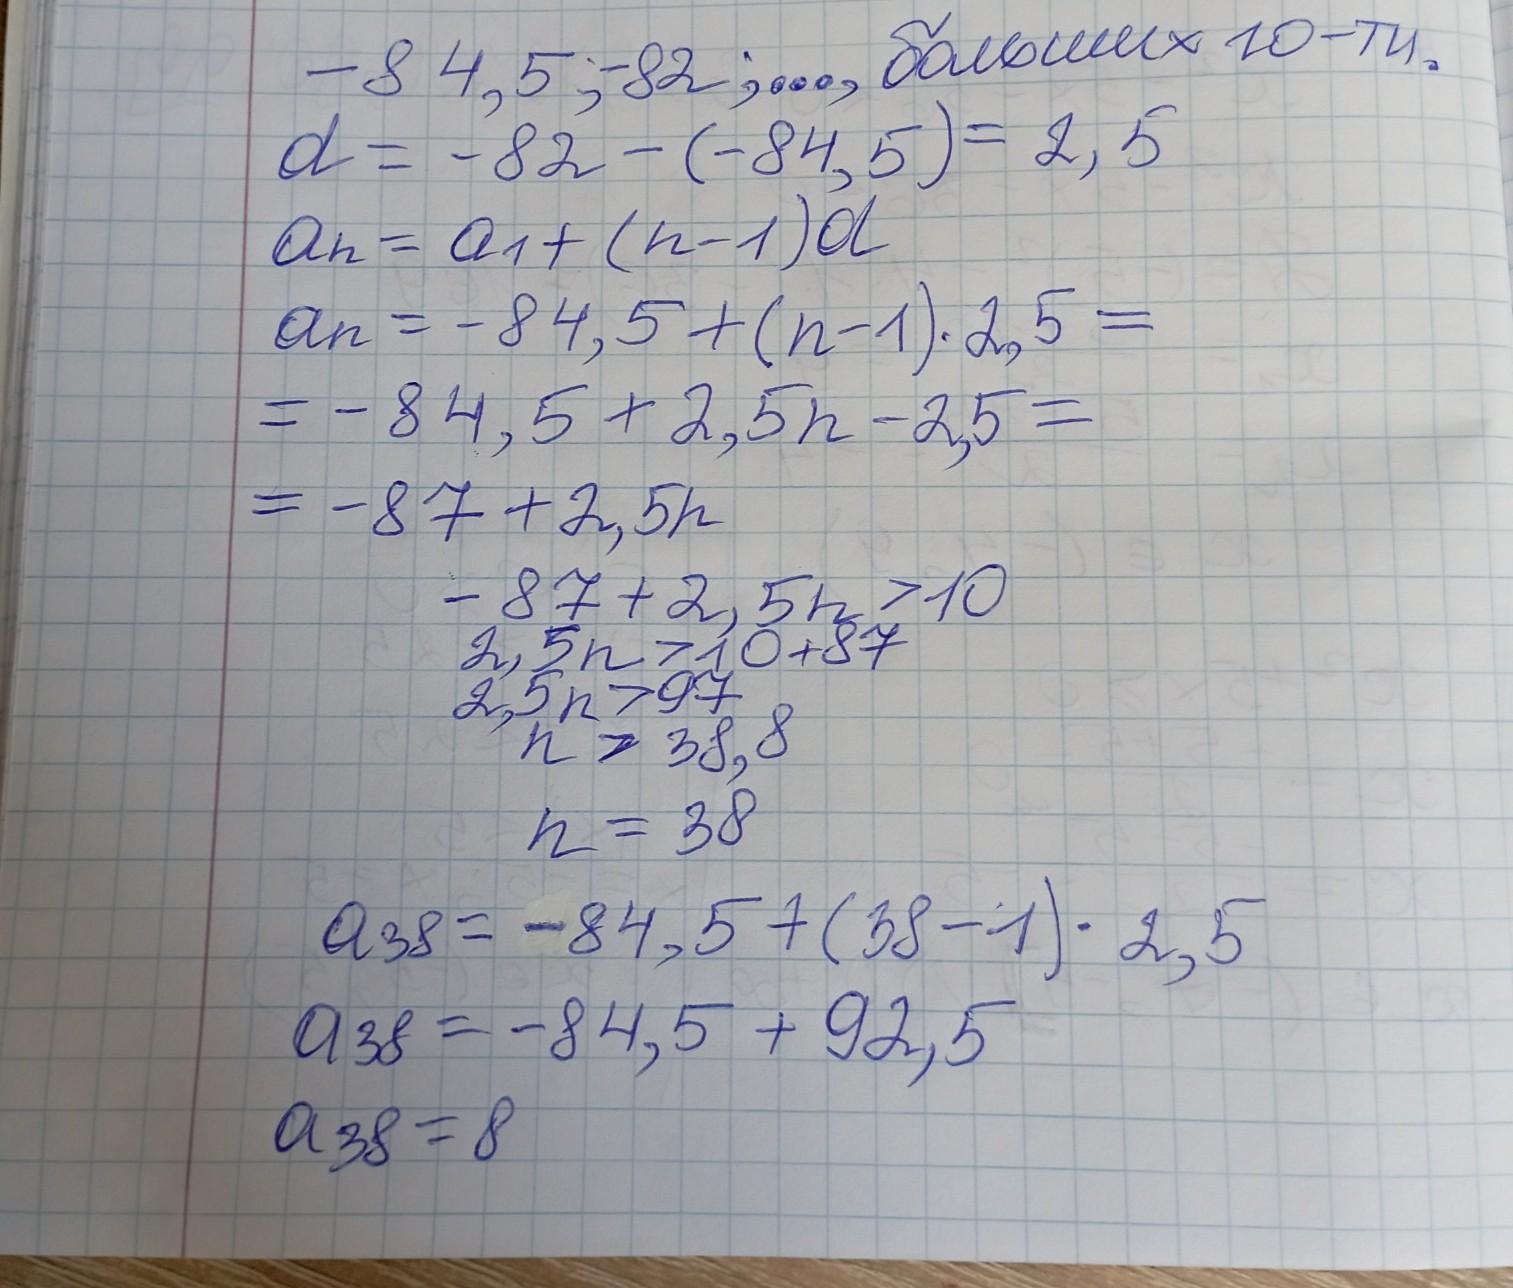 -84,5;-82;..., больших 10-ти.
d = -82 - (-84,5) = 2,5
an = a1 + (n-1)d
an = -84,5 + (n-1)·2,5 =
= -84,5 + 2,5n - 2,5 =
= -87 + 2,5n
-87 + 2,5n > 10
2,5n > 10 + 87
2,5n > 97
n > 38,8
n = 38
a38 = -84,5 + (38-1)· 2,5
a38 = -84,5 + 92,5
a38 = 8